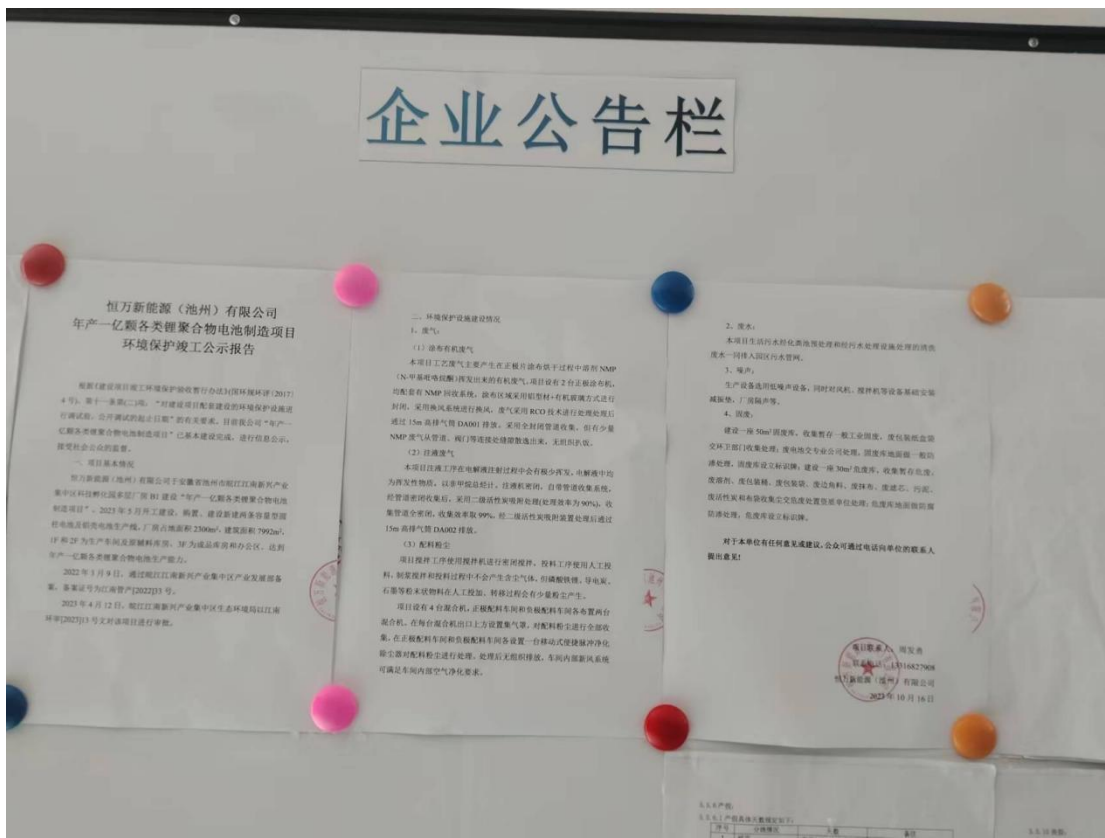 企业公告栏
恒万新能源（池州）有限公司
年产一亿颗各类锂聚合物电池制造项目
环境保护竣工公示报告
根据《建设项目竣工环境保护验收暂行办法》(国环规环评〔2017〕
4号)，第十一条第(二)项，"对建设项目配套建设的环境保护设施进
行调试前，公开调试的起止日期"的有关要求，目前我公司"年产一
亿颗各类锂聚合物电池制造项目"已基本建设完成，进行信息公示，
接受社会公众的监督。
一、项目基本情况
恒万新能源（池州）有限公司于安徽省池州市皖江江南新兴产业
集中区科技孵化园多层厂房B1建设"年产一亿颗各类锂聚合物电池
制造项目"，2023年5月开工建设，购置、建设新建两条容量型圆
柱电池及铝壳电池生产线，厂房占地面积2300m²，建筑面积7992m²，
1F和2F为生产车间及原辅料库房，3F为成品库房和办公区，达到
年产一亿颗各类锂聚合物电池生产能力。
2022年3月9日，通过皖江江南新兴产业集中区产业发展部备
案，备案证号为江南管产[2022]33号。
2023年4月12日，皖江江南新兴产业集中区生态环境局以江南
环审[2023]3号文对该项目进行审批。
二、环境保护设施建设情况
1、废气：
（1）涂布有机废气
本项目工艺废气主要产生在正极片涂布烘干过程中溶剂NMP
（N-甲基吡咯烷酮）挥发出来的有机废气，项目设有2台正极涂布机，
均配套有NMP回收系统，涂布区域采用铝型材+有机玻璃方式进行
封闭，采用换风系统进行换风，废气采用RCO技术进行处理处理后
通过15m高排气筒DA001排放。采用全封闭管道收集，但有少量
NMP废气从管道、阀门等连接处缝隙散逸出来，无组织扒放。
（2）注液废气
本项目注液工序在电解液注射过程中会有极少挥发，电解液中均
为挥发性物质，以非甲烷总烃计，注液机密闭，自带管道收集系统，
经管道密闭收集后，采用二级活性炭吸附处理(处理效率为90%)，收
集管道全密闭，收集效率取99%，经二级活性炭吸附装置处理后通过
15m高排气筒DA002排放。
（3）配料粉尘
项目搅拌工序使用搅拌机进行密闭搅拌，投料工序使用人工投
料，制浆搅拌和投料过程中不会产生含尘气体，但磷酸铁锂、导电炭、
石墨等粉末状物料在人工投加、转移过程会有少量粉尘产生。
项目设有4台混合机，正极配料车间和负极配料车间各布置两台
混合机，在每台混合机出口上方设置集气罩，对配料粉尘进行全部收
集，在正极配料车间和负极配料车间各设置一台移动式便捷脉冲净化
除尘器对配料粉尘进行处理，处理后无组织排放，车间内部新风系统
可满足车间内部空气净化要求。
2、废水：
本项目生活污水经化粪池预处理和经污水处理设施处理的清洗
废水一同排入园区污水管网。
3、噪声：
生产设备选用低噪声设备，同时对风机、搅拌机等设备基础安装
减振垫、厂房隔声等。
4、固废：
建设一座50m²固废库，收集暂存一般工业固废，废包装纸盒袋
交环卫部门收集处理；废电池交专业公司处理，固废库地面做一般防
渗处理，固废库设立标识牌；建设一座30m²危废库，收集暂存危废；
废溶剂、废包装桶、废包装袋、废边角料、废抹布、废滤芯、污泥、
废活性炭和布袋收集尘交危废处置资质单位处理；危废库地面做防腐
防渗处理；危废库设立标识牌。
对于本单位有任何意见或建议，公众可通过电话向单位的联系人
提出意见!
项目联系人：周发勇
联系电话：13316827908
恒万新能源（池州）有限公司
2023年10月16日
5.5.5产权:
序号
天数
备注